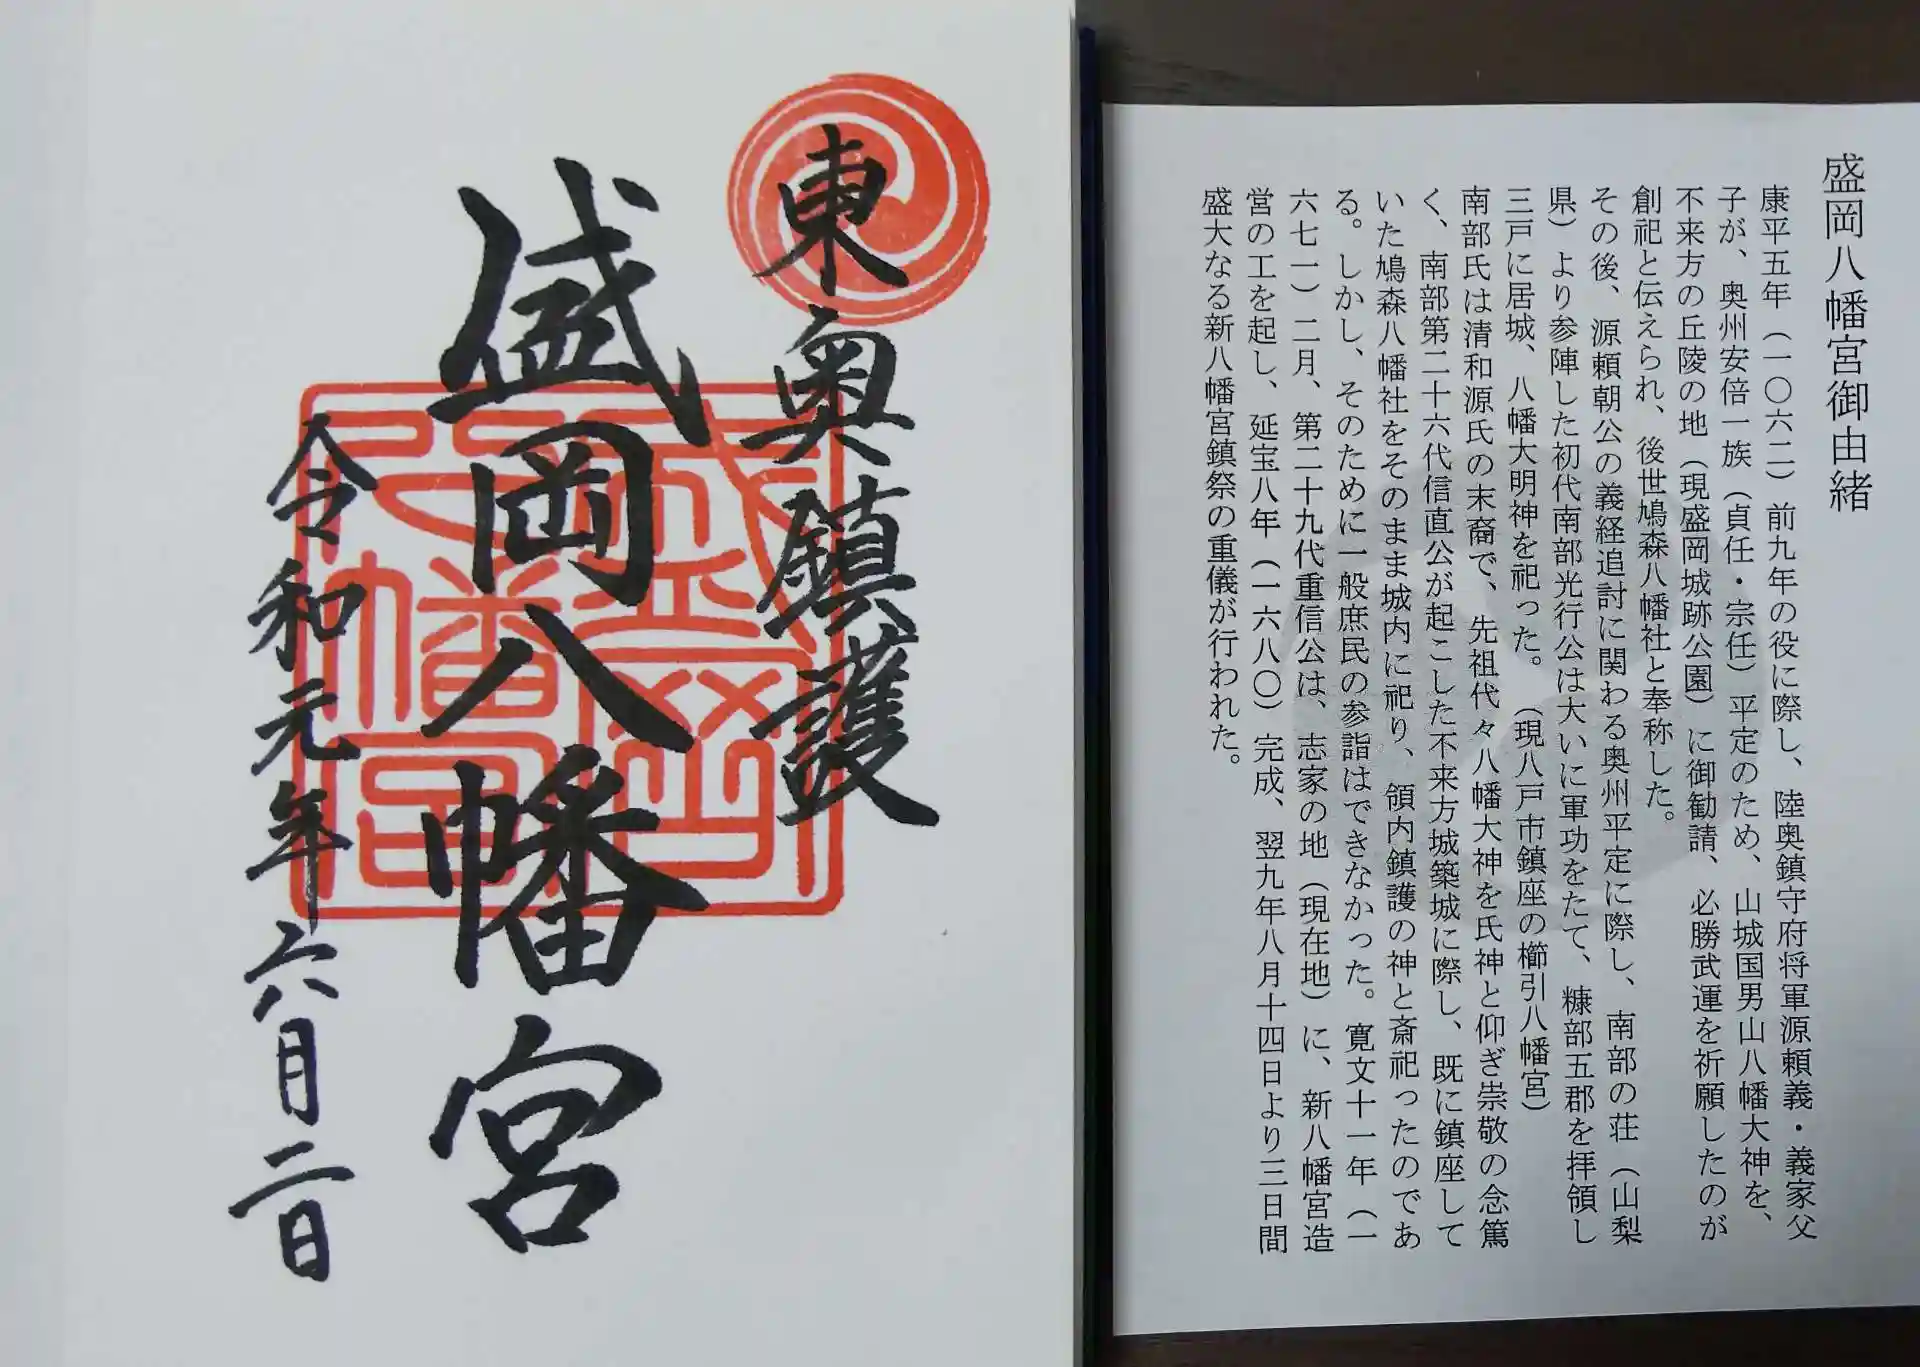 盛岡八幡宮御由緒
康平五年（一〇六二）前九年の役に際し、陸奥鎮守府将軍源頼義・義家父
子が、奥州安倍一族（貞任・宗任）平定のため、山城国男山八幡大神を、
不来方の丘陵の地（現盛岡城跡公園）に御勧請、必勝武運を祈願したのが
創祀と伝えられ、後世鳩森八幡社と奉称した。
その後、源頼朝公の義経追討に関わる奥州平定に際し、南部の荘（山梨
県）より参陣した初代南部光行公は大いに軍功をたて、糠部五郡を拝領し
三戸に居城、八幡大明神を祀った。（現八戸市鎮座の櫛引八幡宮）
南部氏は清和源氏の末裔で、先祖代々八幡大神を氏神と仰ぎ崇敬の念篤
く、南部第二十六代信直公が起こした不来方城築城に際し、既に鎮座して
いた鳩森八幡社をそのまま城内に祀り、領内鎮護の神と斎祀ったのであ
る。しかし、そのために一般庶民の参詣はできなかった。寛文十一年（一
六七一）二月、第二十九代重信公は、志家の地（現在地）に、新八幡宮造
営の工を起し、延宝八年（一六八〇）完成、翌九年八月十四日より三日間
盛大なる新八幡宮鎮祭の重儀が行われた。
東奥鎮護
盛岡八幡宮
令和元年六月二日
盛岡
八幡宮